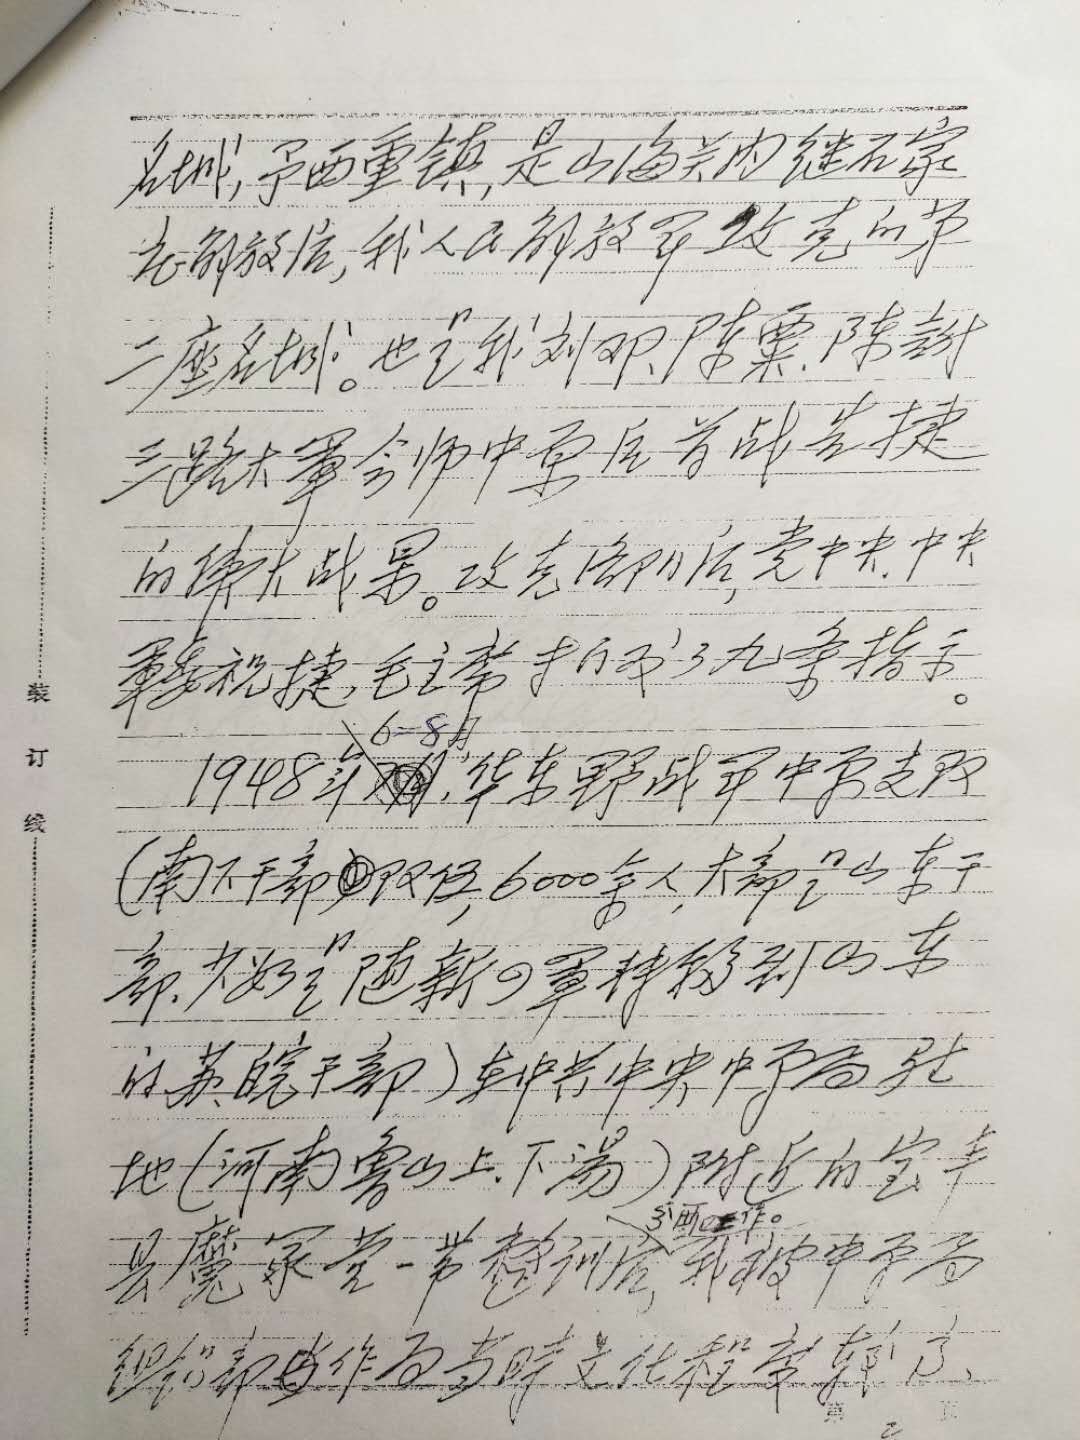 名城,予西重镇,是山海关内继石家
庄解放后,我人民解放军攻克的第
二座名城。也是我刘邓、陈粟、陈谢
三路大军会师中原后首战告捷
的伟大战果。攻克洛阳后,党中央、中央
军委祝捷,毛主席了九条指示。
6-8月
1948年,华东野战军中原支队
(南下干部队伍,6000余人,大部是山东干
部、少数是随新四军转移到山东
的苏皖干部)在中共中央中原局驻
地(河南鲁山上、下汤)附近的宝丰
县魔冢营一带整训后,我被中原局
到西工作。
组织部当作为当时文化程度较高、
装
订
线
第 2 页